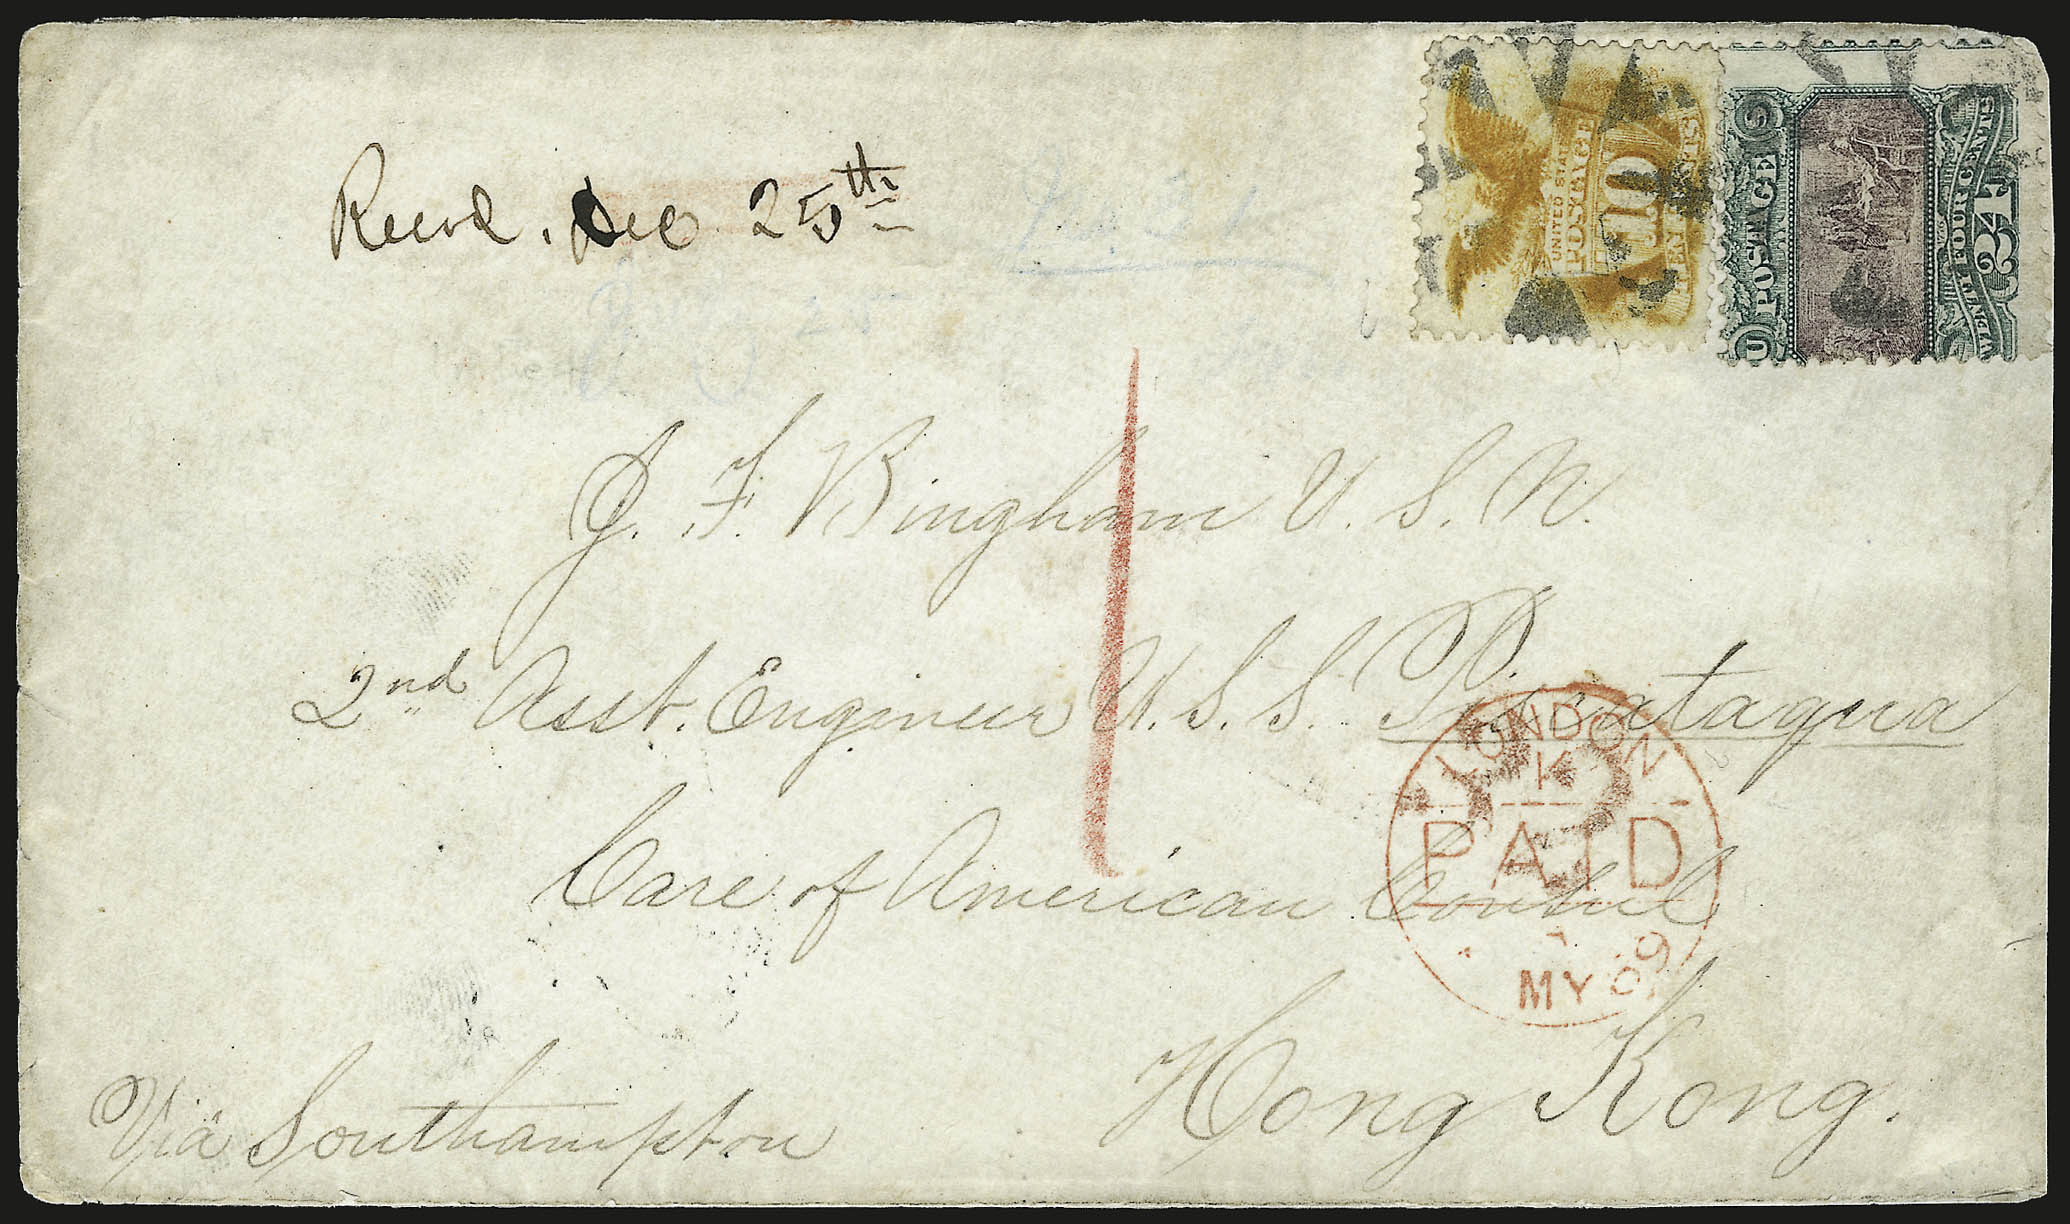 Recvd. Dec 25th
UNITED STATES
POSTAGE
10
U POSTAGE S
TWENTY FOUR CENTS
24
J. F. Bingham U. S. N.
2nd Asst. Engineer U. S. S. Piscataqua
Care of American Consul
Hong Kong.
Via Southampton
1
LONDON
K
PAID
MY 69